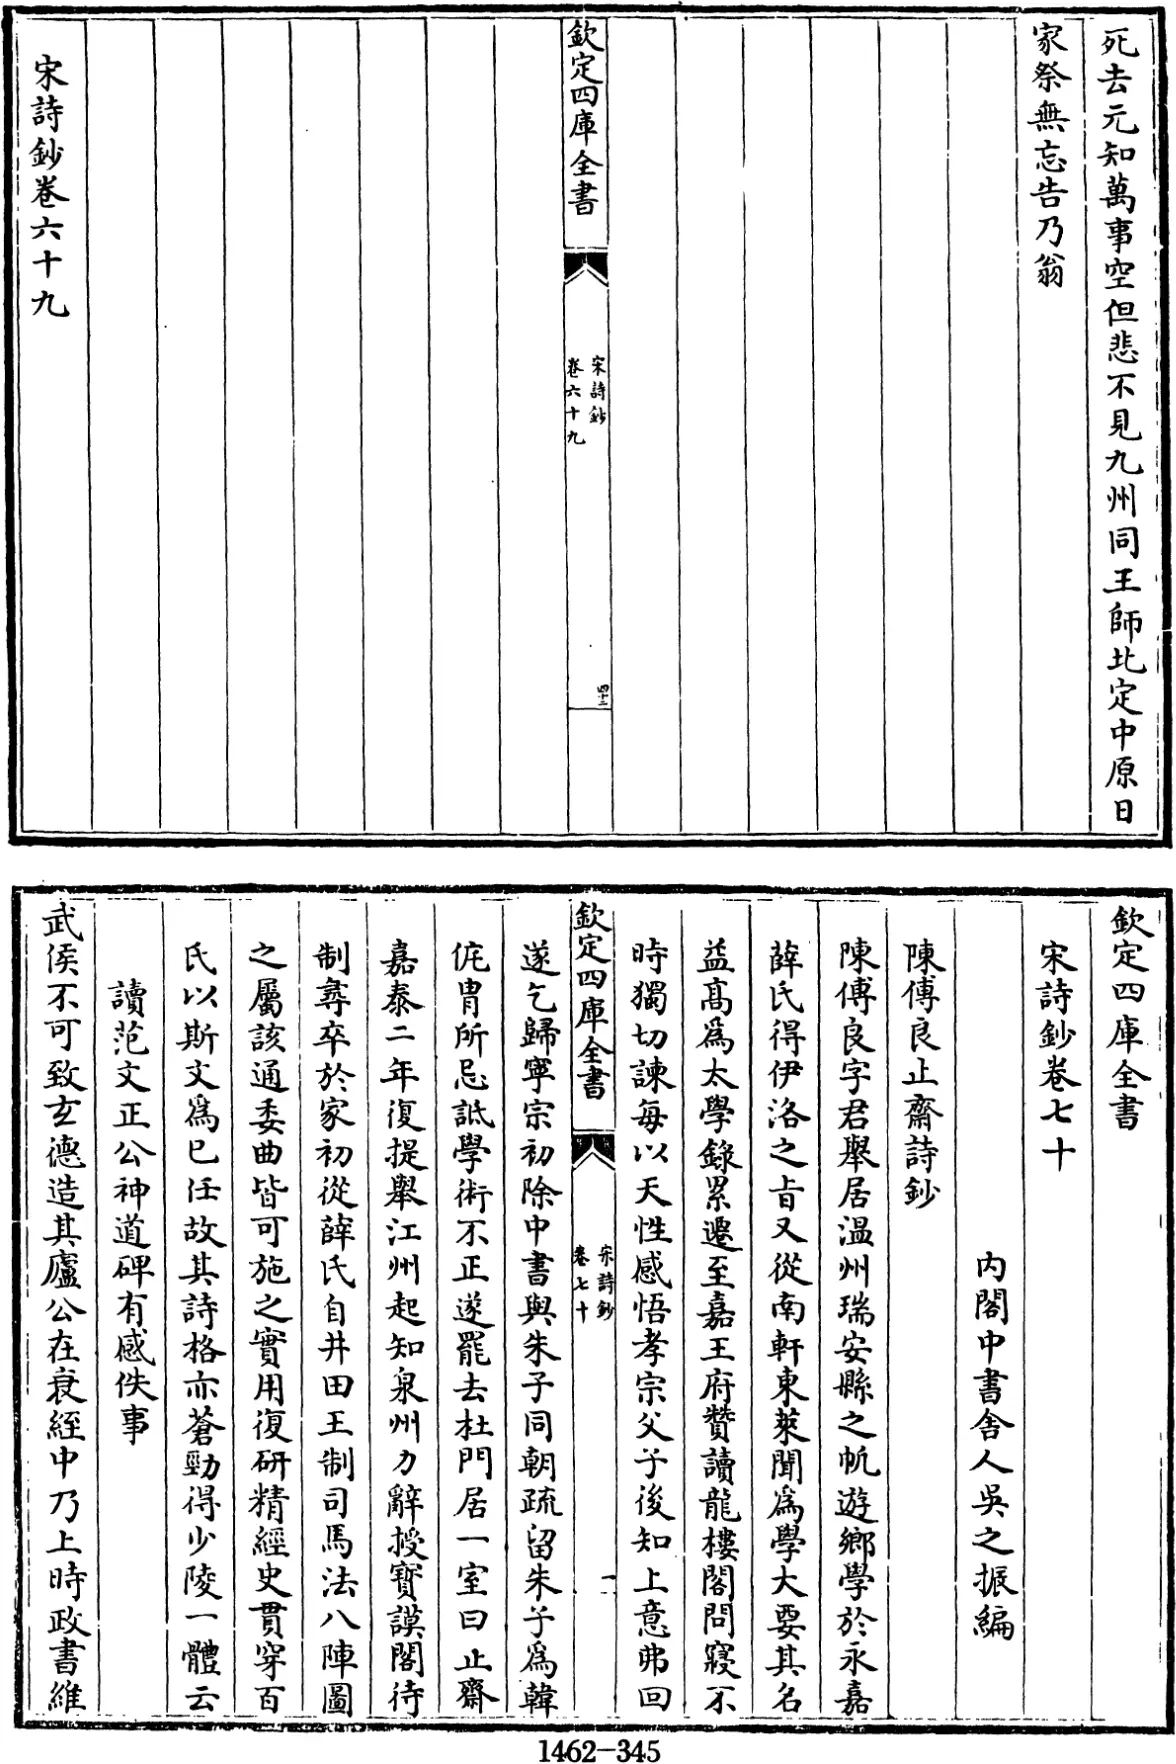 死去元知萬事空但悲不見九州同王師北定中原日
家祭無忘告乃翁
欽定四庫全書
宋詩鈔
卷六十九
四十三
宋詩鈔卷六十九
欽定四庫全書
宋詩鈔卷七十
内閣中書舍人吳之振編
陳傅良止齋詩鈔
陳傅良字君舉居温州瑞安縣之帆遊鄉學於永嘉
薛氏得伊洛之旨又從南軒東萊聞為學大要其名
益髙為太學錄累遷至嘉王府贊讀龍樓閣問寢不
時獨切諫每以天性感悟孝宗父子後知上意弗回
遂乞歸寧宗初除中書與朱子同朝疏留朱子為韓
侂胄所忌詆學術不正遂罷去杜門居一室曰止齋
嘉泰二年復提舉江州起知泉州力辭授寳謨閣待
制尋卒於家初從薛氏自井田王制司馬法八陣圖
之屬該通委曲皆可施之實用復研精經史貫穿百
氏以斯文為已任故其詩格亦蒼勁得少陵一體云
讀范文正公神道碑有感佚事
武侯不可致玄德造其廬公在衰絰中乃上時政書維
欽定四庫全書
宋詩鈔
卷七十
一
1462-345